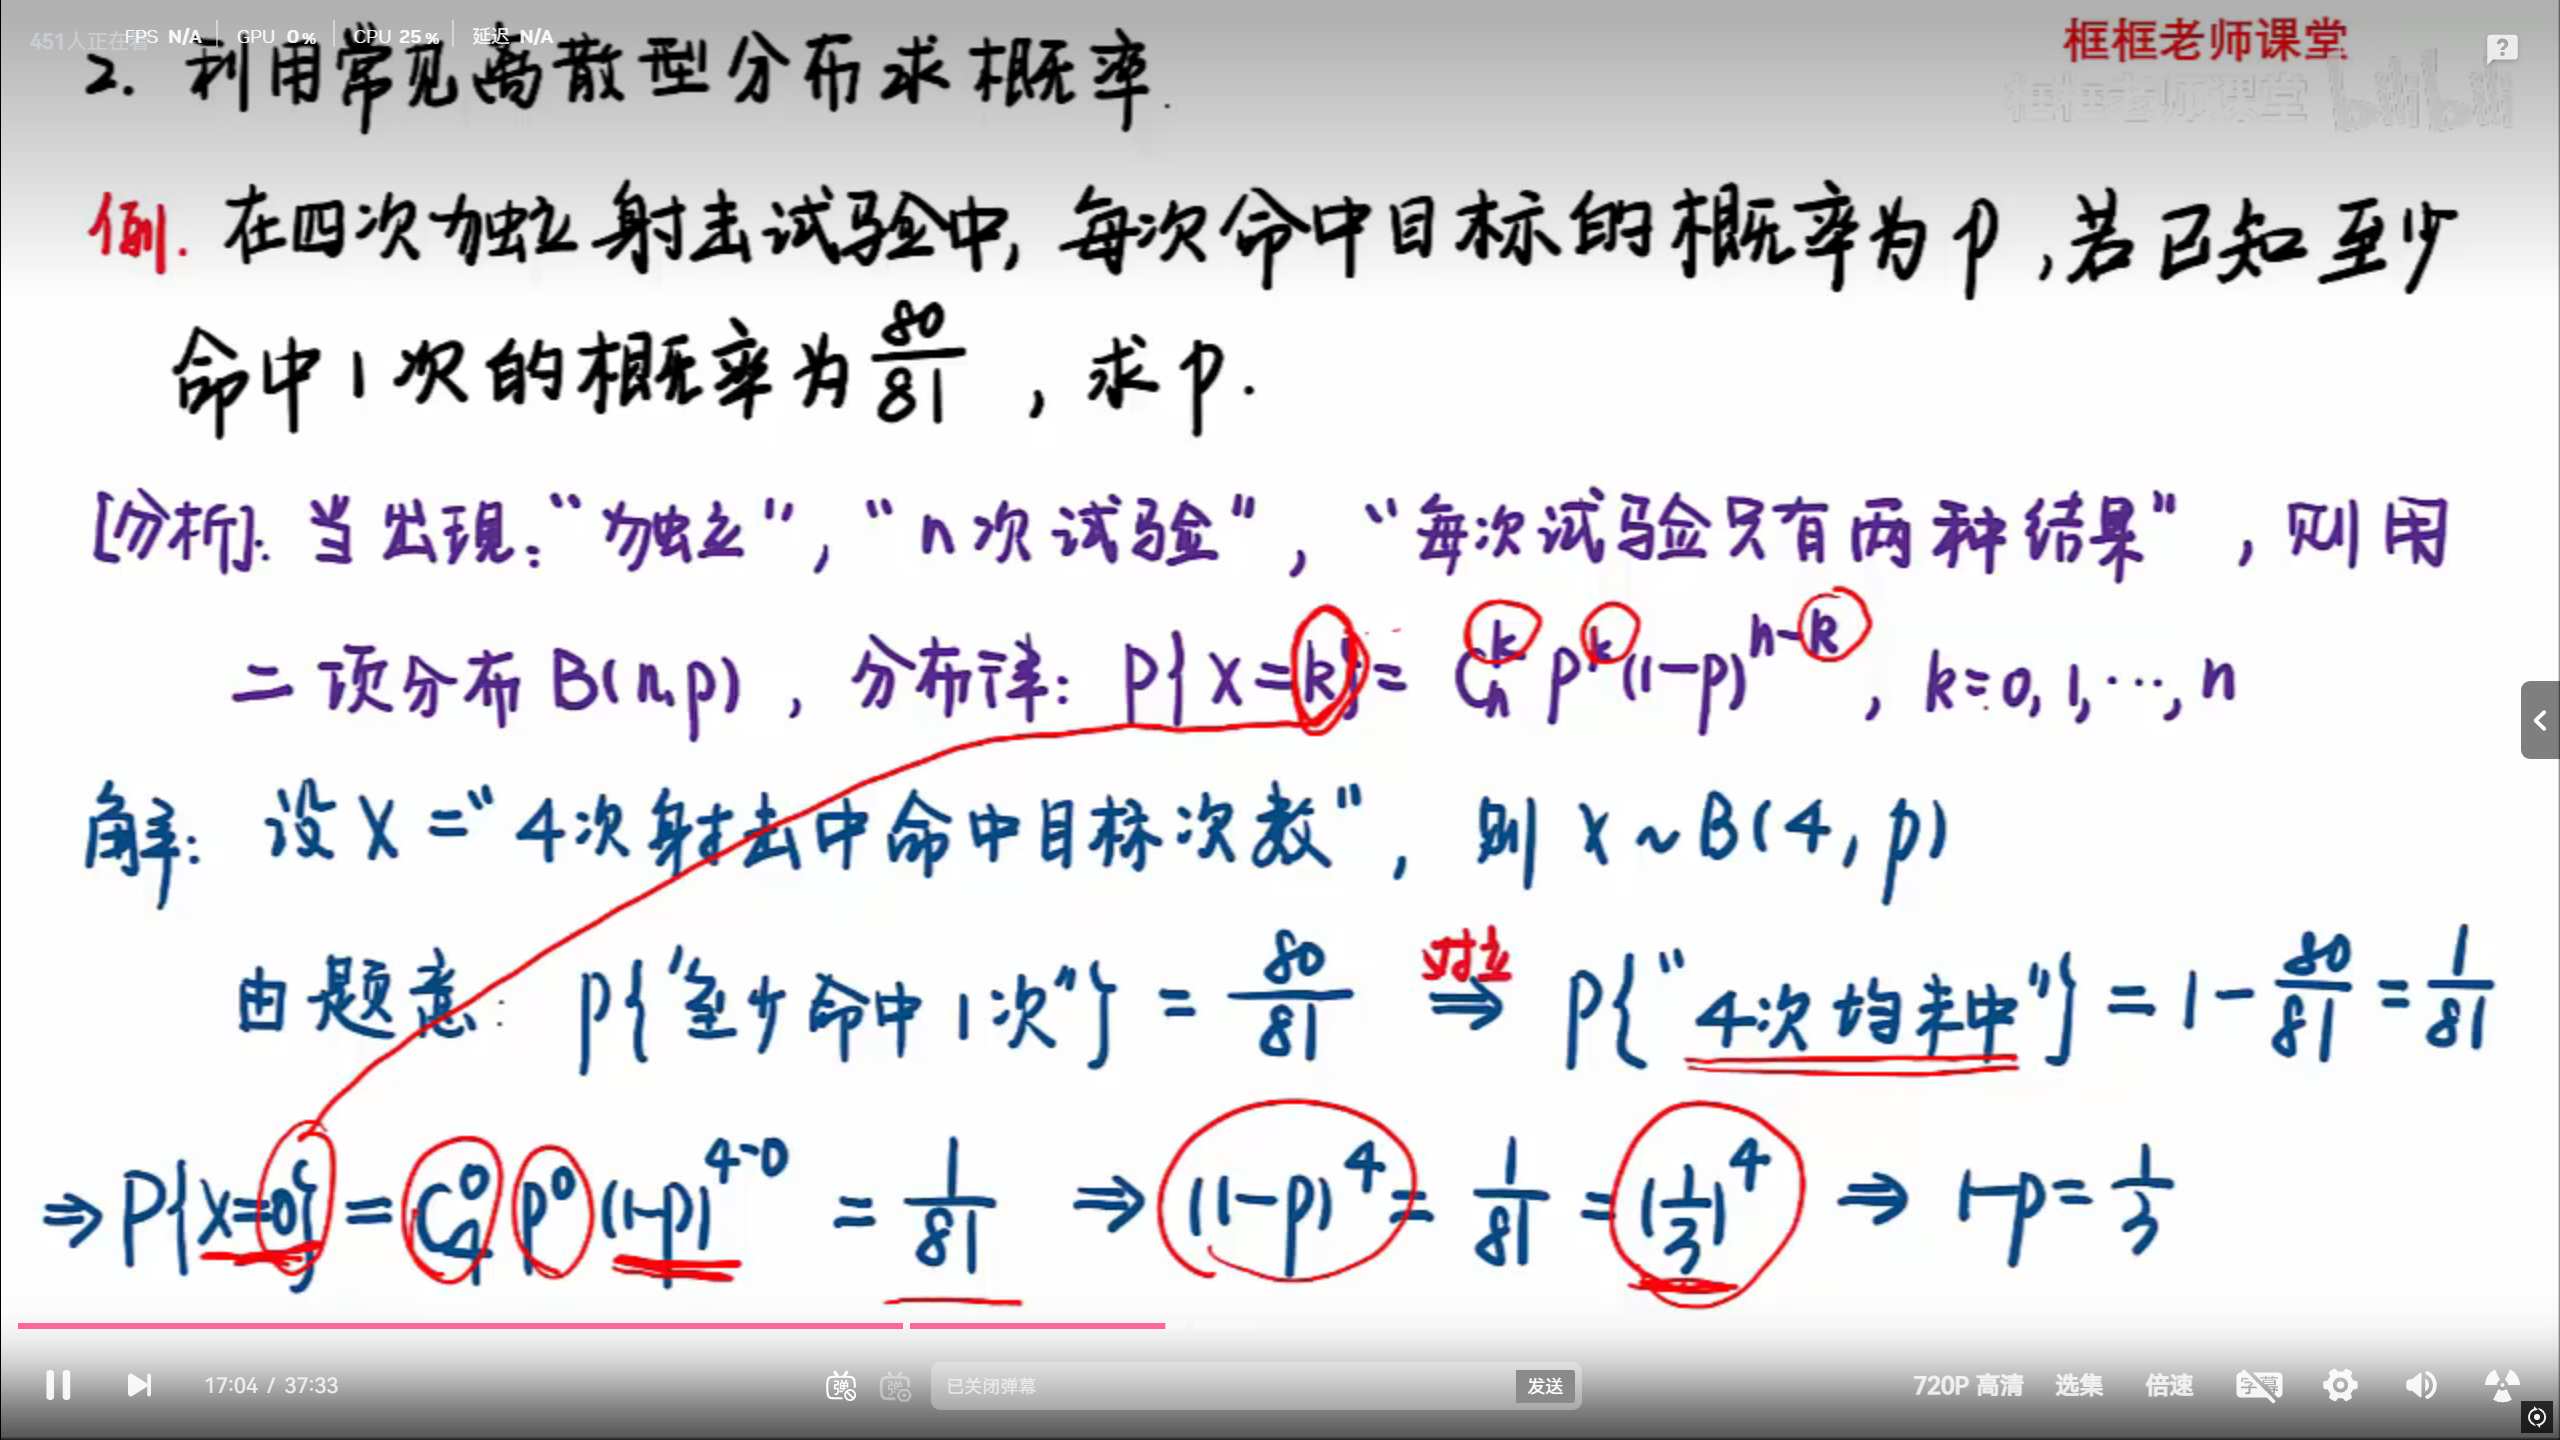 451人正在看 FPS N/A GPU 0% CPU 25% 延迟 N/A
框框老师课堂
框框老师课堂 bilibili
2. 利用常见离散型分布求概率.
例. 在四次独立射击试验中, 每次命中目标的概率为 p , 若已知至少
命中 1 次的概率为 80/81 , 求 p .
[分析]: 当出现: “独立”, “n 次试验”, “每次试验只有两种结果”, 则用
二项分布 B(n,p) , 分布律: P{X=k} = C_n^k p^k (1-p)^{n-k} , k=0,1,…,n
解: 设 X = “4次射击中命中目标次数”, 则 X ~ B(4, p)
对立
由题意: P{“至少命中 1 次”} = 80/81 ⇒ P{“4次均未中”} = 1 - 80/81 = 1/81
⇒ P{X=0} = C_4^0 p^0 (1-p)^{4-0} = 1/81 ⇒ (1-p)^4 = 1/81 = (1/3)^4 ⇒ 1-p = 1/3
17:04 / 37:33 弹 弹 已关闭弹幕 发送 720P 高清 选集 倍速 字幕